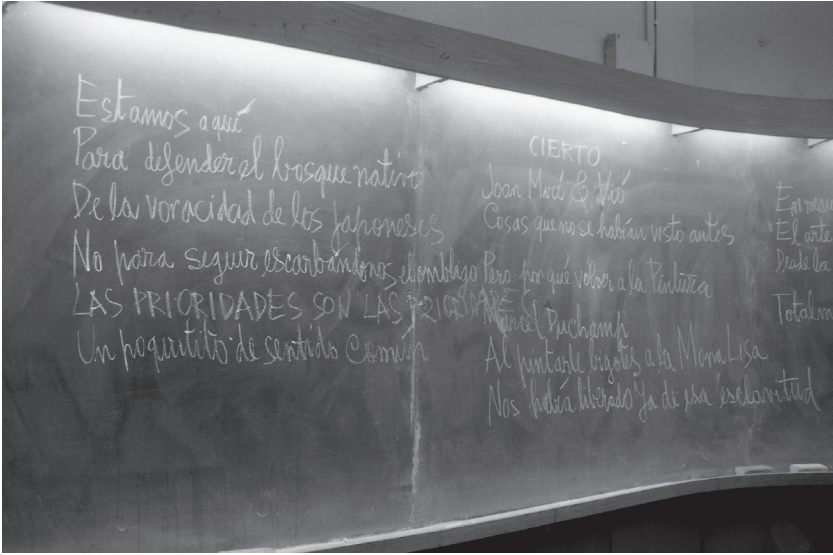 Estamos aquí
Para defender el bosque nativo
De la voracidad de los japoneses
No para seguir escarbándonos el ombligo
LAS PRIORIDADES SON LAS PRIORIDADES
Un poquitito de sentido común
CIERTO
Joan Miró & Vió
Cosas que no se habían visto antes
Pero por qué volver a la Pintura
Marcel Duchamp
Al pintarle bigotes a la Mona Lisa
Nos había liberado ya de esa esclavitud
El arte
Desde la